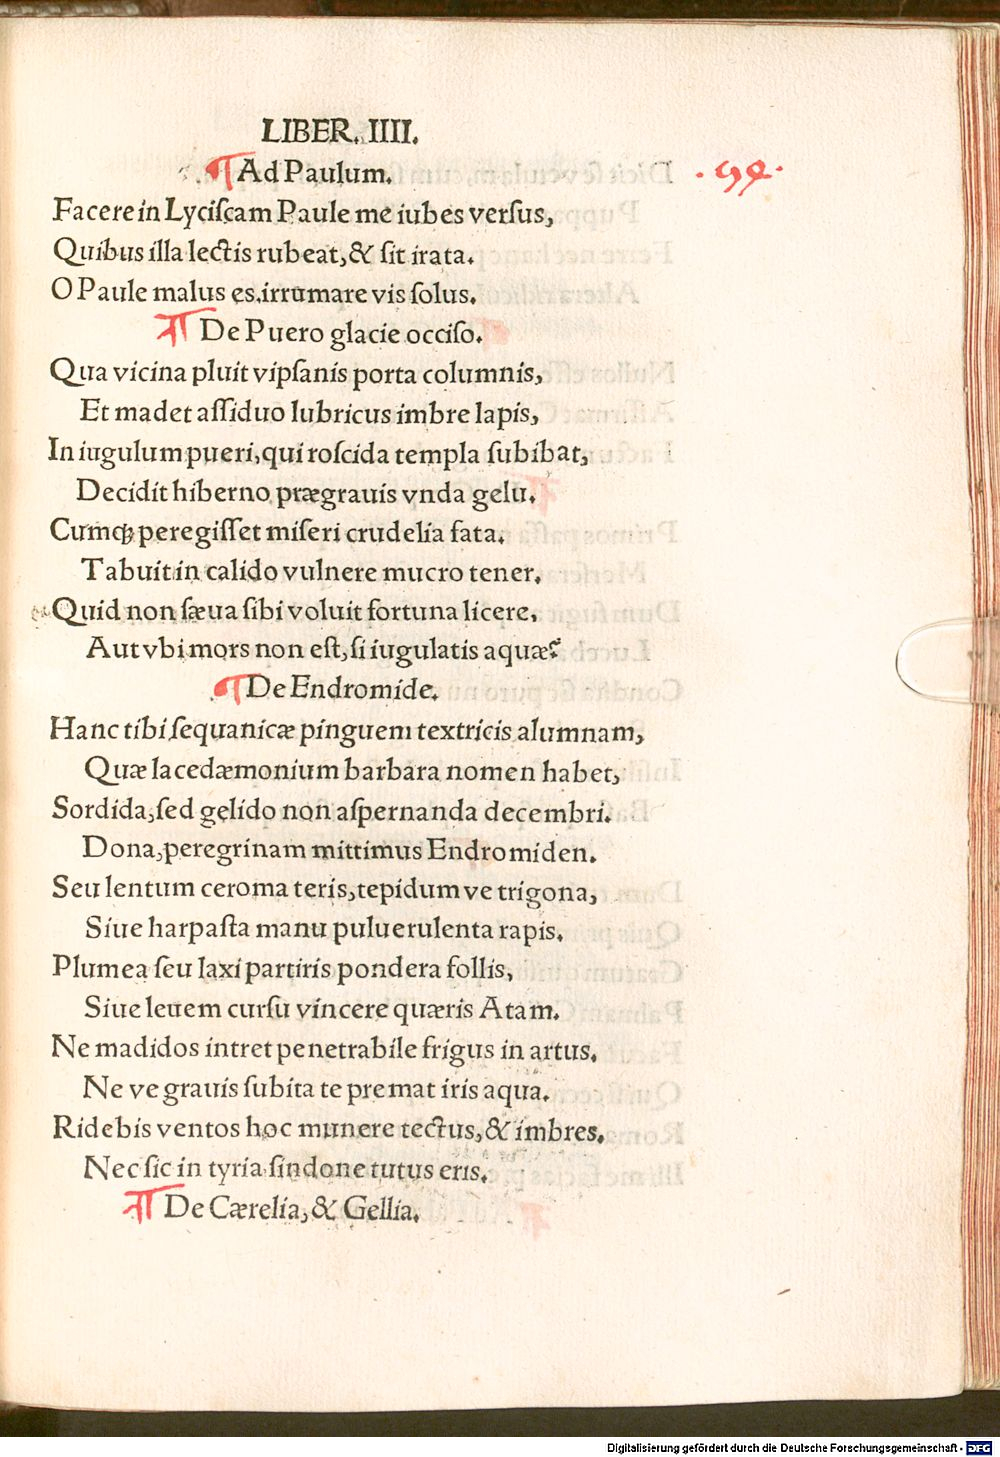 LIBER. IIII.
¶ Ad Paulum.
Facere in Lyciscam Paule me iubes versus,
Quibus illa lectis rubeat, & sit irata.
O Paule malus es. irrumare vis solus.
¶ De Puero glacie occiso.
Qua vicina pluit vipsanis porta columnis,
Et madet assiduo lubricus imbre lapis,
In iugulum pueri, qui roscida templa subibat,
Decidit hiberno prægrauis vnda gelu.
Cumqꝫ peregisset miseri crudelia fata.
Tabuit in calido vulnere mucro tener.
Quid non sæua sibi voluit fortuna licere.
Aut vbi mors non est, si iugulatis aquæ?
¶ De Endromide.
Hanc tibi sequanicæ pinguem textricis alumnam,
Quæ lacedæmonium barbara nomen habet,
Sordida, sed gelido non aspernanda decembri.
Dona, peregrinam mittimus Endromiden.
Seu lentum ceroma teris, tepidum ve trigona,
Siue harpasta manu puluerulenta rapis.
Plumea seu laxi partiris pondera follis,
Siue leuem cursu vincere quæris Atam.
Ne madidos intret penetrabile frigus in artus.
Ne ve grauis subita te premat iris aqua.
Ridebis ventos hoc munere tectus, & imbres.
Nec sic in tyria sindone tutus eris.
¶ De Cærelia, & Gellia.
Digitalisierung gefördert durch die Deutsche Forschungsgemeinschaft - DFG